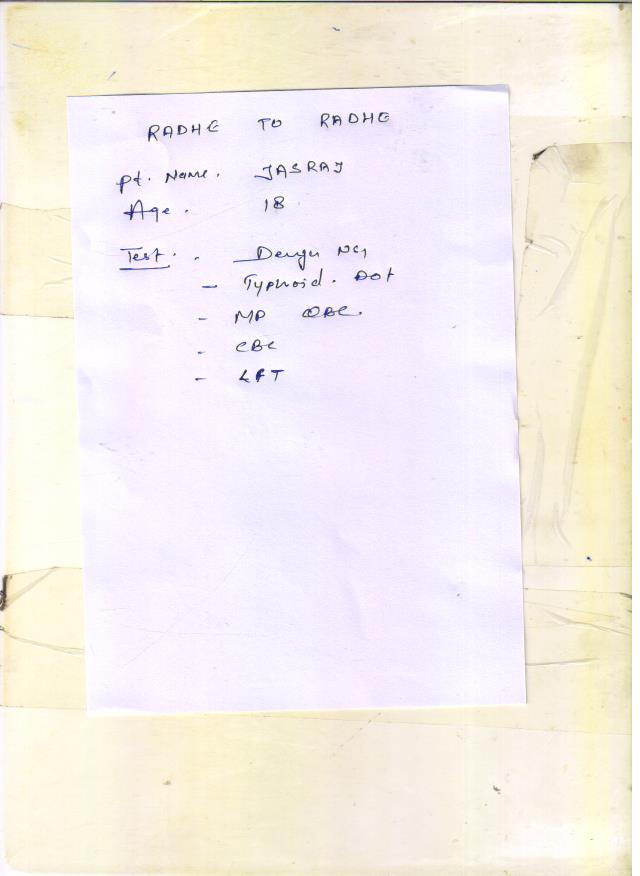 RADHE TO RADHE
Pt. Name. JASRAJ
Age. 18.
Test. - Dengu NS1
- Typhoid. Dot
- MP QBC.
- CBC
- LFT